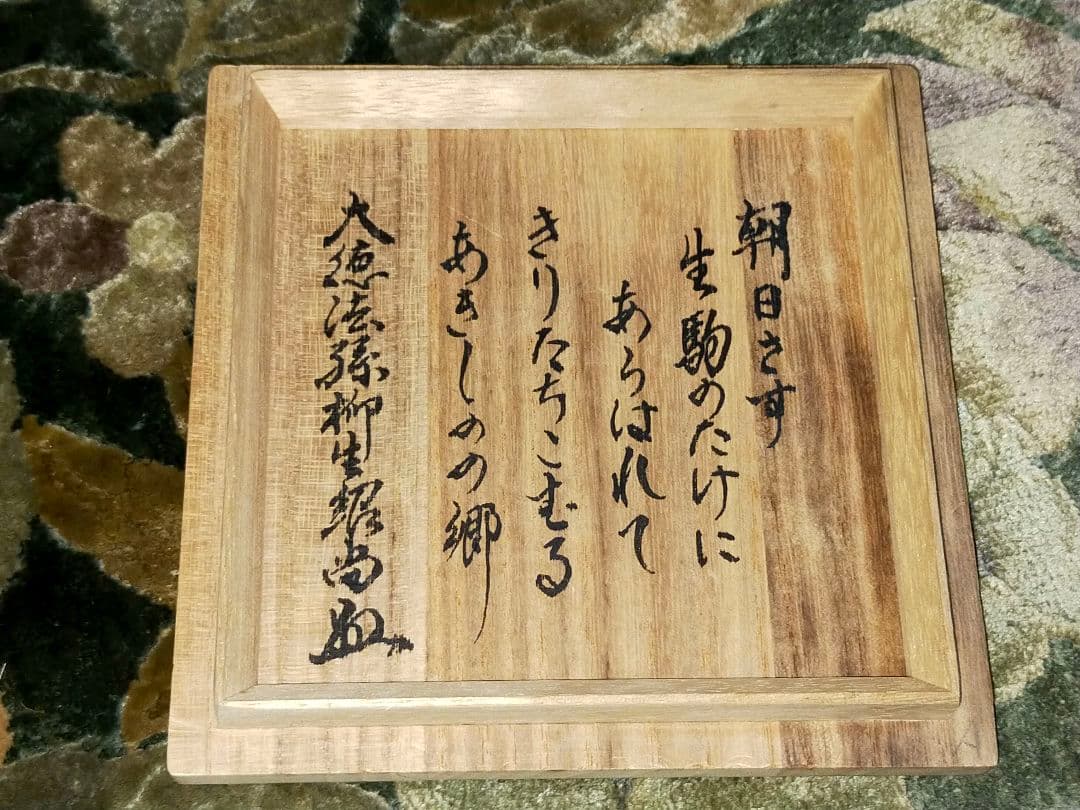 朝日さす
生駒のたけに
あらはれて
きりたちこむる
あきしのの郷
大徳法孫柳生紹尚